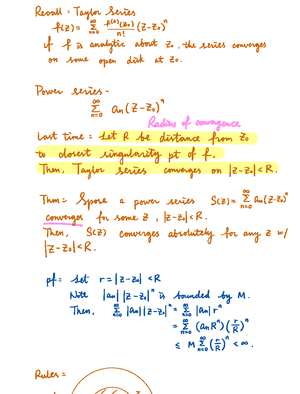 Recall = Taylor Series
f(z) = ∞Σn=0 f⁽ⁿ⁾(z₀)/n! (z-z₀)ⁿ
if f is analytic about z₀, the series converges
on some open disk at z₀.
Power series -
∞Σn=0 aₙ(z-z₀)ⁿ
Radius of convergence
Last time = Let R be distance from z₀
to closest singularity pt of f.
Then, Taylor series converges on |z-z₀|<R.
Thm = Spose a power series S(z) = ∞Σn=0 aₙ(z-z₀)ⁿ
converges for some z, |z-z₀|<R.
Then, S(z) converges absolutely for any z w/
|z-z₀|<R.
pf = set r = |z-z₀| < R
Note |aₙ| |z-z₀|ⁿ is bounded by M.
Then, ∞Σn=0 |aₙ| |z-z₀|ⁿ = ∞Σn=0 |aₙ| rⁿ
= ∞Σn=0 (aₙRⁿ)(r/R)ⁿ
≤ M ∞Σn=0 (r/R)ⁿ < ∞.
Rules =